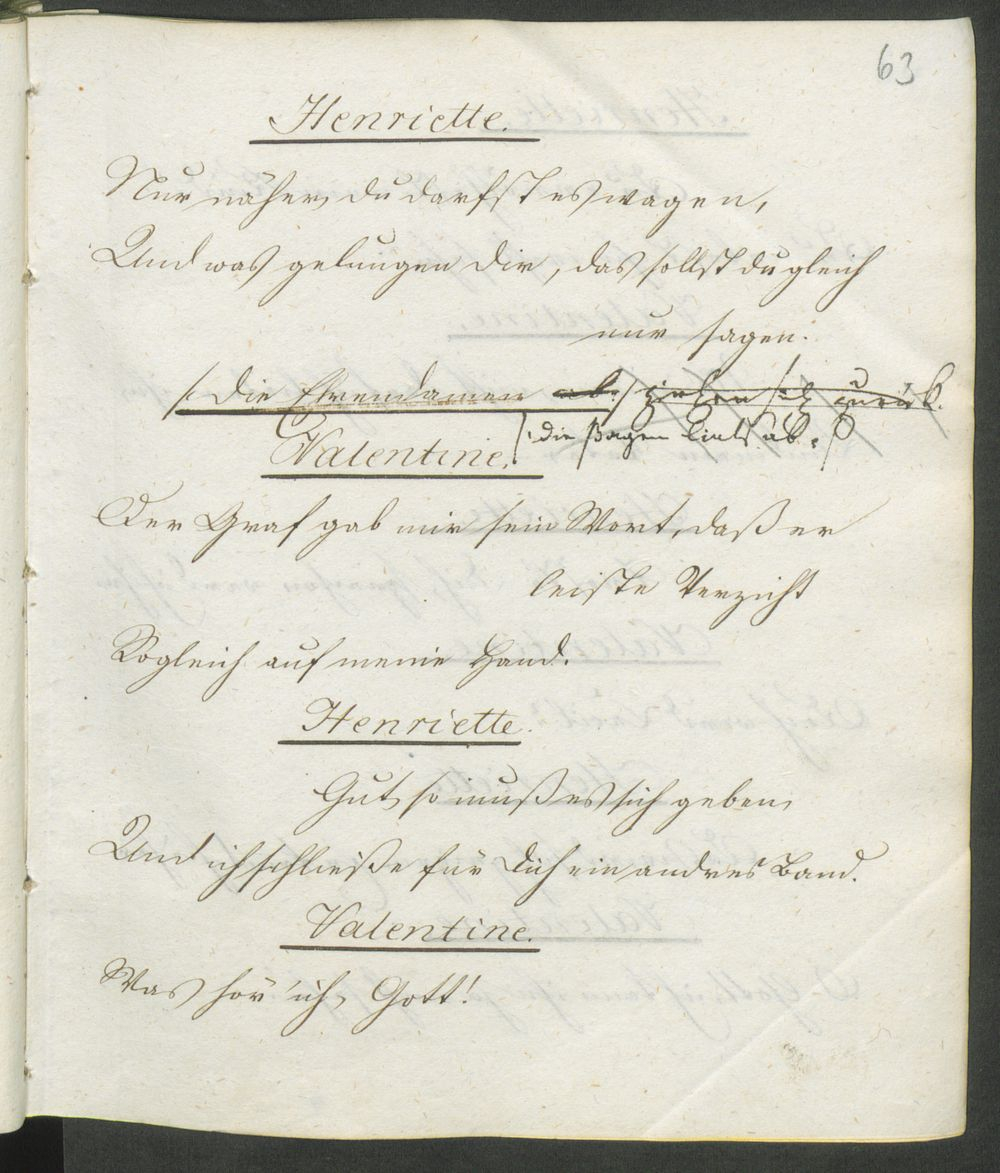 63
Henriette.
Nur näher, du darfst es wagen,
Und was gelungen dir, das sollst du gleich
nur sagen.
/: Die Ehrendamen ab. / ziehen sich zurück.
Valentine. /: die Pagen links ab. :/
Der Graf gab mir sein Wort, daß er
leiste Verzicht
Sogleich auf meine Hand.
Henriette.
Gut, so muß es sich geben,
Und ich schließe für dich ein andres Band.
Valentine.
Was hör' ich, Gott!